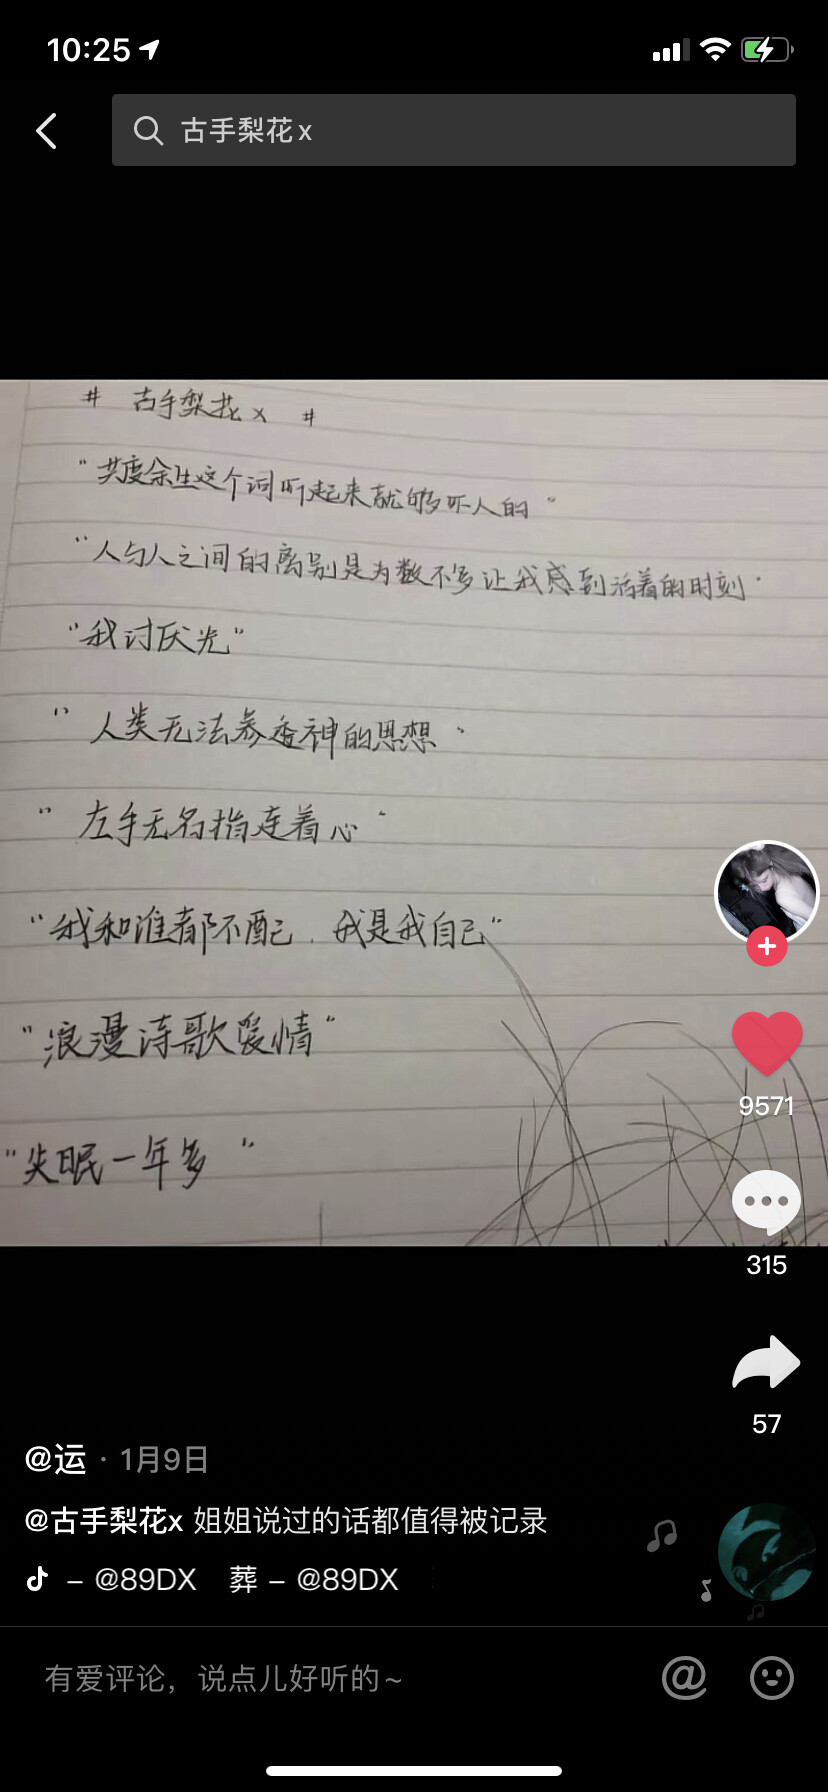 10:25
古手梨花x
# 古手梨花x #
"共度余生这个词听起来就够吓人的"
"人与人之间的离别是为数不多让我感到活着的时刻"
"我讨厌光"
"人类无法参透神的思想"
"左手无名指连着心"
"我和谁都不配，我是我自己"
"浪漫诗歌爱情"
"失眠一年多"
9571
315
57
@运 · 1月9日
@古手梨花x 姐姐说过的话都值得被记录
– @89DX 葬 – @89DX
有爱评论，说点儿好听的~